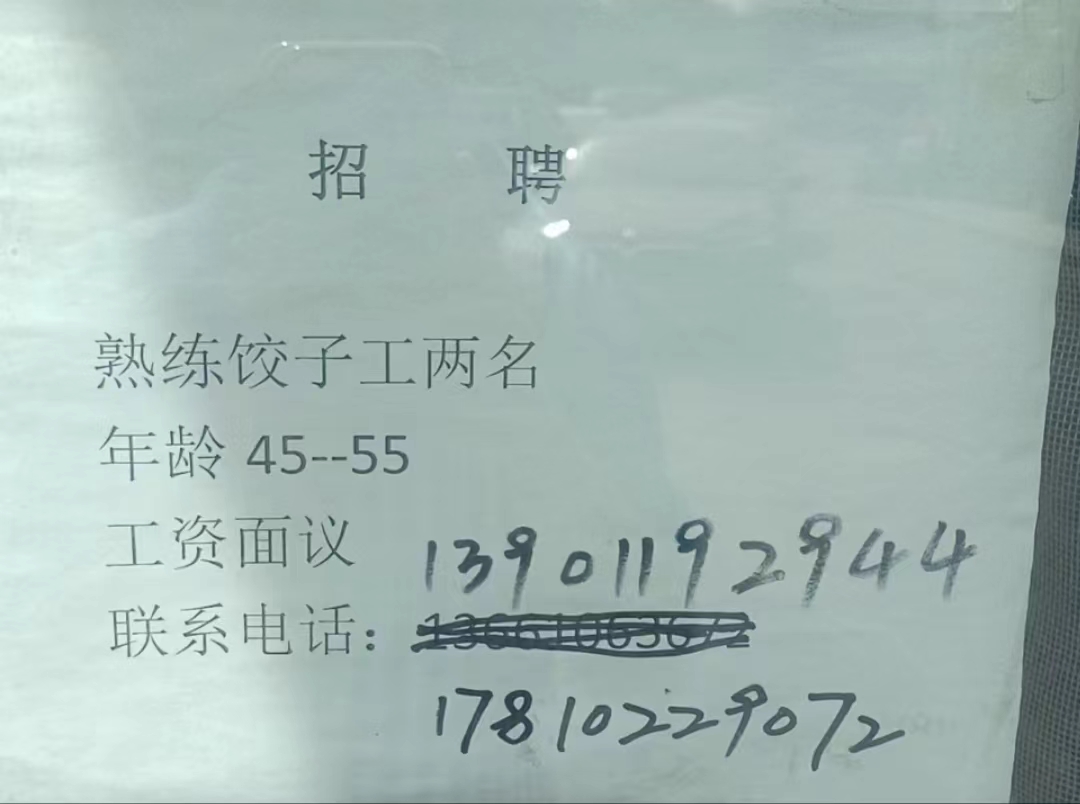 招 聘
熟练饺子工两名
年龄 45--55
工资面议
13901192944
联系电话：
17810229072